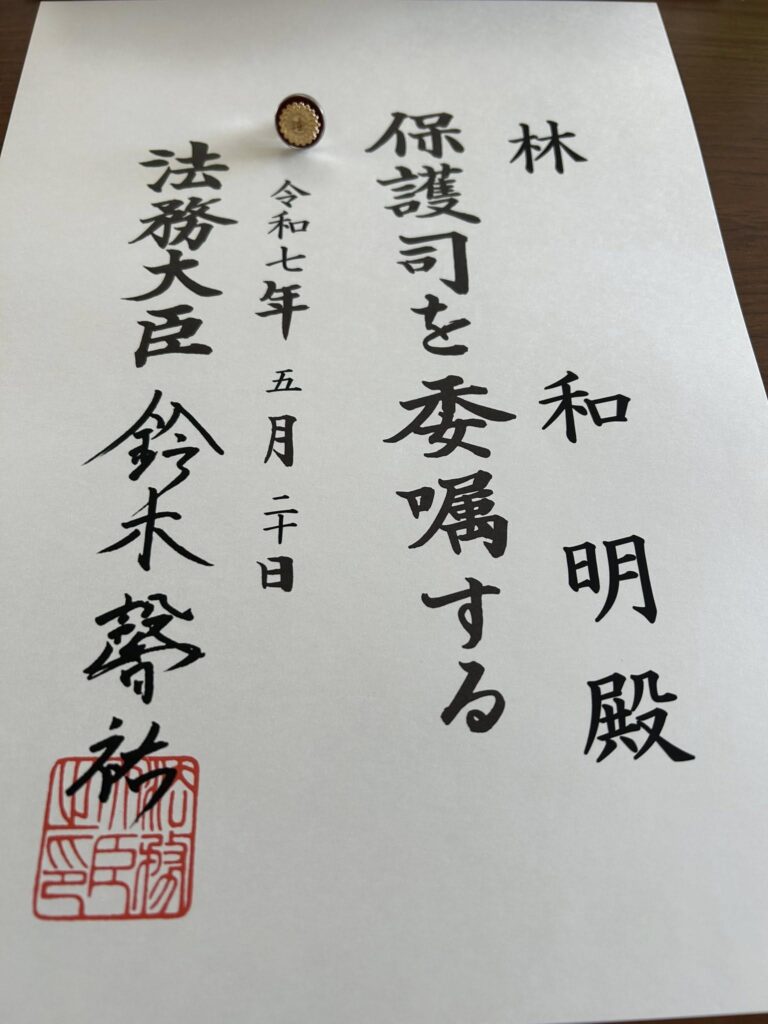 林 和明殿
保護司を委嘱する
令和七年 五月 二十日
法務大臣 鈴木馨祐
法務大臣之印